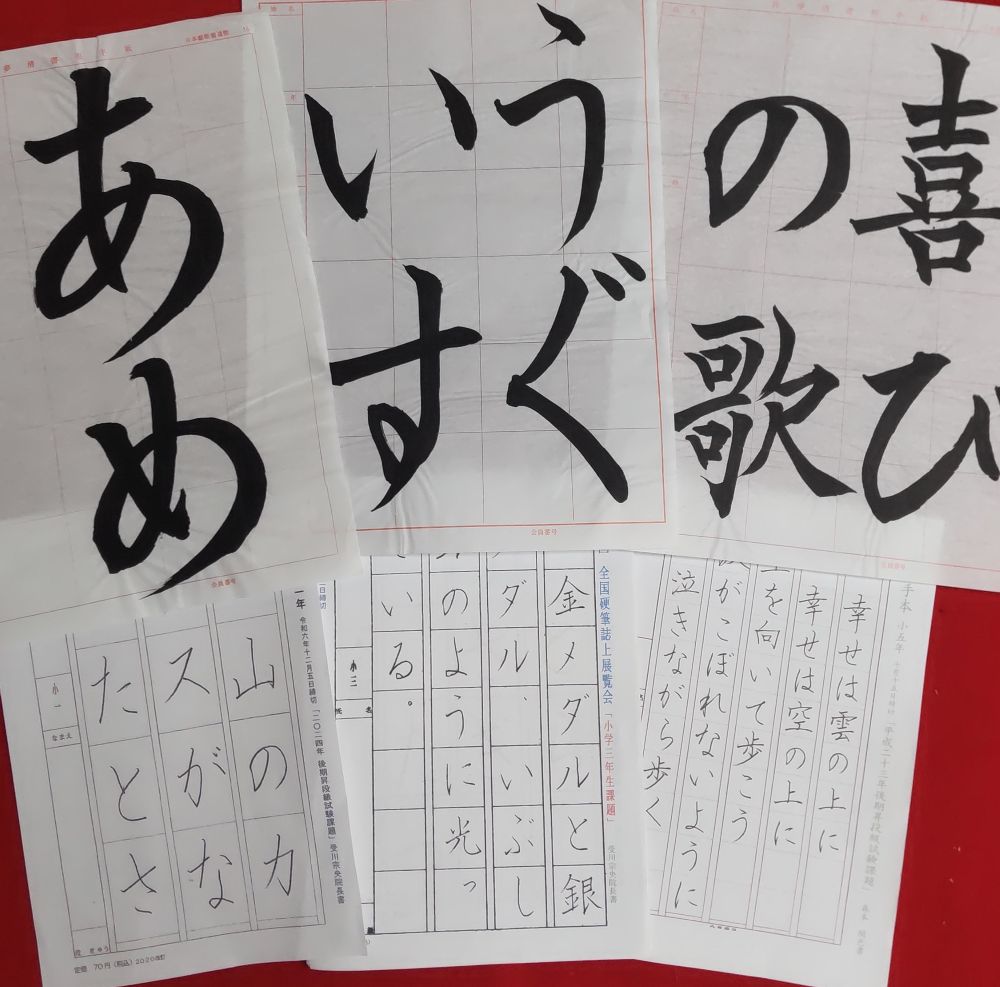 あめ
会員番号
うぐ
いす
会員番号
喜び
の歌
会員番号
一年 令和六年十二月五日締切「二〇二四年 後期昇段級試験課題」 受川宗央院長書
山のカ
スがな
たとさ
小一
なまえ
きゅう
定価 70円(税込) 2020改訂
全国硬筆誌上展覧会「小学三年生課題」 受川宗央院長書
金メダルと銀
ダル、いぶし
のように光っ
いる。
小三
手本 小五年 十月十五日締切「平成二十三年後期昇段級試験課題」
幸せは雲の上に
幸せは空の上に
を向いて歩こう
がこぼれないように
泣きながら歩く